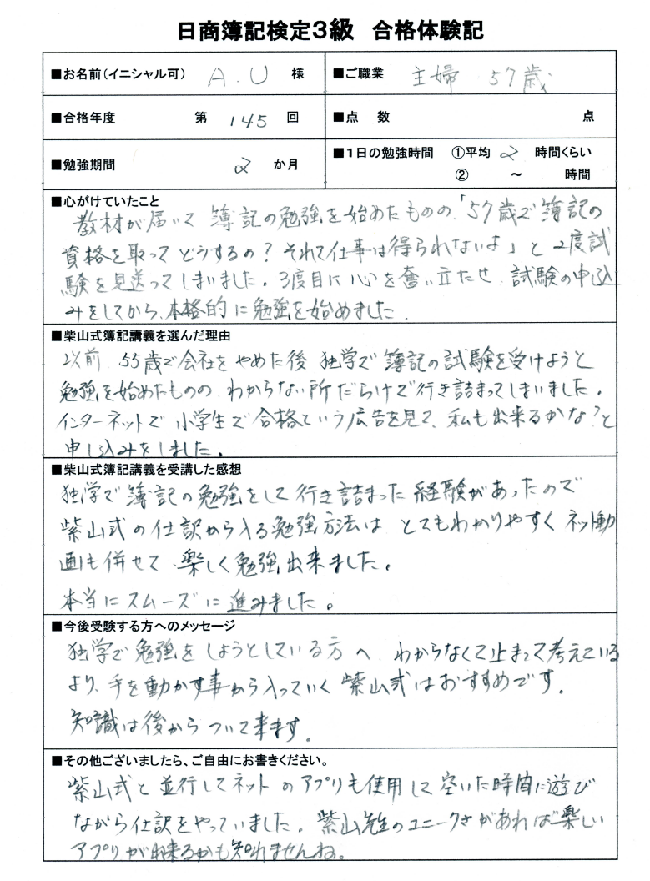 日商簿記検定3級 合格体験記
■お名前(イニシャル可) A.U 様 ■ご職業 主婦 57歳
■合格年度 第 145 回 ■点 数 点
■勉強期間 2 か月 ■1日の勉強時間 ①平均 2 時間くらい
② ~ 時間
■心がけていたこと
教材が届いて 簿記の勉強を始めたものの「57歳で簿記の
資格を取ってどうするの?それで仕事は得られないよ」と2度試
験を見送ってしまいました。3度目に心を奮い立たせ、試験の申込
みをしてから、本格的に勉強を始めました。
■柴山式簿記講義を選んだ理由
以前 55歳で会社をやめた後 独学で簿記の試験を受けようと
勉強を始めたものの わからない所だらけで行き詰まってしまいました。
インターネットで小学生で合格という広告を見て、私も出来るかな?と
申し込みをしました。
■柴山式簿記講義を受講した感想
独学で簿記の勉強をして行き詰まった経験があったので
柴山式の仕訳から入る勉強方法は とてもわかりやすく ネット動
画も併せて 楽しく勉強出来ました。
本当にスムーズに進みました。
■今後受験する方へのメッセージ
独学で勉強をしようとしている方へ わからなくて止まって考えている
より、手を動かす事から入っていく柴山式はおすすめです。
知識は後からついて来ます。
■その他ございましたら、ご自由にお書きください。
柴山式と並行してネットのアプリも使用して空いた時間に遊び
ながら仕訳をやっていました。柴山先生のユニークさがあれば楽しい
アプリが出来るかも知れませんね。